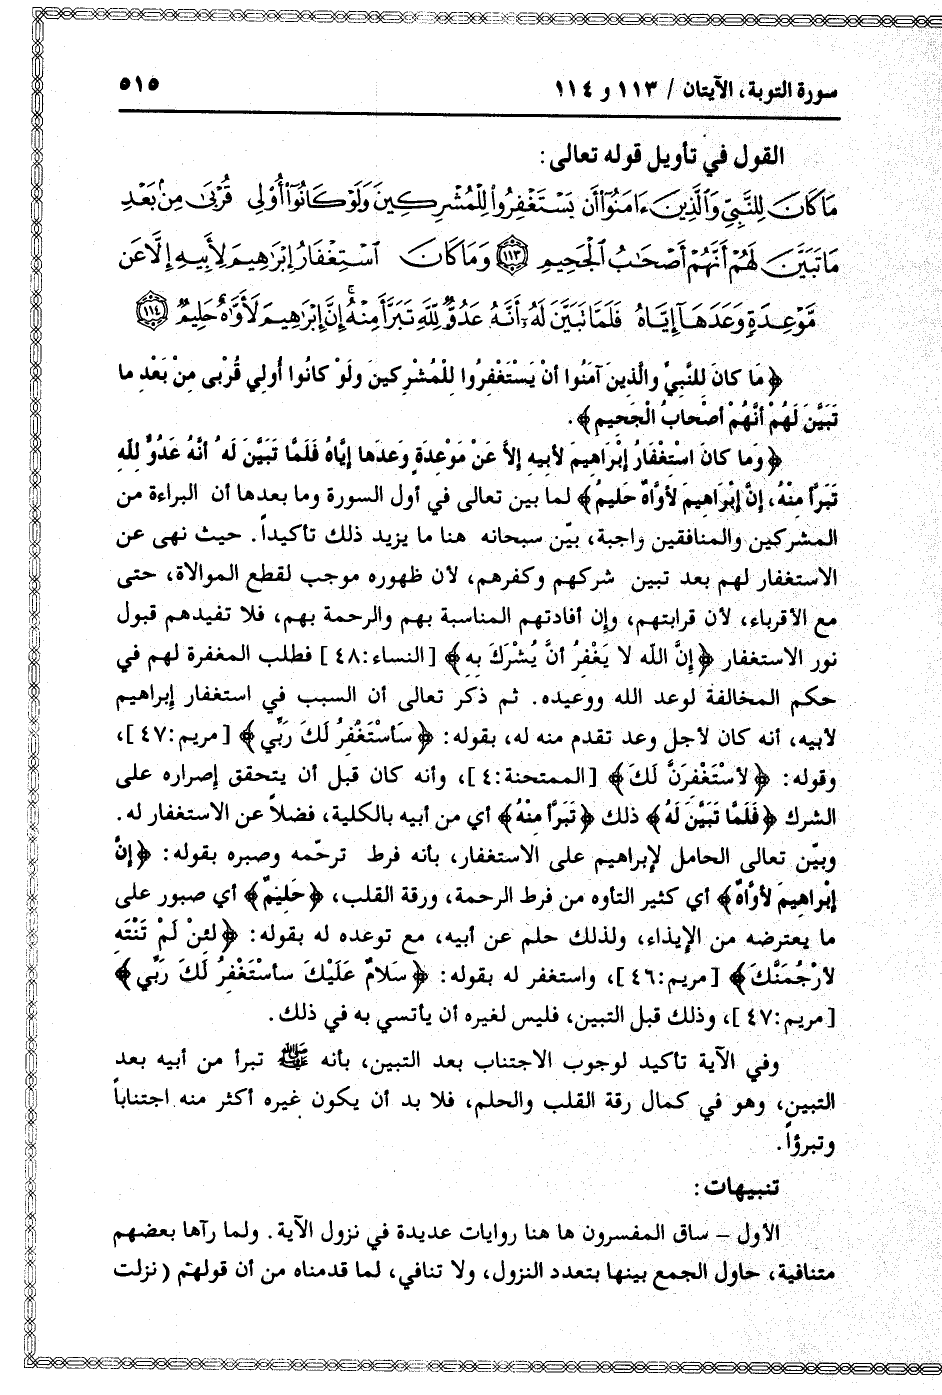 سورة التوبة، الآيتان / ١١٣ و ١١٤
٥١٥
القول في تأويل قوله تعالى:
مَا كَانَ لِلنَّبِيِّ وَٱلَّذِينَ ءَامَنُوٓا۟ أَن يَسْتَغْفِرُوا۟ لِلْمُشْرِكِينَ وَلَوْ كَانُوٓا۟ أُو۟لِى قُرْبَىٰ مِنۢ بَعْدِ
مَا تَبَيَّنَ لَهُمْ أَنَّهُمْ أَصْحَٰبُ ٱلْجَحِيمِ ١١٣ وَمَا كَانَ ٱسْتِغْفَارُ إِبْرَٰهِيمَ لِأَبِيهِ إِلَّا عَن
مَّوْعِدَةٍ وَعَدَهَآ إِيَّاهُ فَلَمَّا تَبَيَّنَ لَهُۥٓ أَنَّهُۥ عَدُوٌّ لِّلَّهِ تَبَرَّأَ مِنْهُ ۚ إِنَّ إِبْرَٰهِيمَ لَأَوَّٰهٌ حَلِيمٌ ١١٤
﴿مَا كانَ لِلنَّبِيِّ والَّذِينَ آمَنُوا أنْ يَسْتَغْفِرُوا لِلْمُشْرِكِينَ ولَوْ كانُوا أُولِي قُرْبى مِنْ بَعْدِ ما
تَبَيَّنَ لَهُمْ أنَّهُمْ أصْحابُ الْجَحِيمِ﴾.
﴿وَما كانَ اسْتِغْفارُ إبْرَاهِيمَ لأبيهِ إلاَّ عَنْ مَوْعِدَةٍ وعَدَها إيَّاهُ فَلَمَّا تَبَيَّنَ لَهُ أنَّهُ عَدُوٌّ لِلَّهِ
تَبَرّأ مِنْهُ، إنَّ إبْرَاهِيمَ لأوَّاهٌ حَلِيمٌ﴾ لما بين تعالى في أول السورة وما بعدها أن البراءة من
المشركين والمنافقين واجبة، بيّن سبحانه هنا ما يزيد ذلك تأكيداً. حيث نهى عن
الاستغفار لهم بعد تبين شركهم وكفرهم، لأن ظهوره موجب لقطع الموالاة، حتى
مع الأقرباء، لأن قرابتهم، وإن أفادتهم المناسبة بهم والرحمة بهم، فلا تفيدهم قبول
نور الاستغفار ﴿إنَّ اللّه لا يَغْفِرُ أنَّ يُشْرَكَ بِهِ﴾ [النساء:٤٨] فطلب المغفرة لهم في
حكم المخالفة لوعد الله ووعيده. ثم ذكر تعالى أن السبب في استغفار إبراهيم
لأبيه، أنه كان لأجل وعد تقدم منه له، بقوله: ﴿سَأسْتَغْفِرُ لَكَ رَبِّي﴾ [مريم:٤٧]،
وقوله: ﴿لأسْتَغْفِرَنَّ لَكَ﴾ [الممتحنة:٤]، وأنه كان قبل أن يتحقق إصراره على
الشرك ﴿فَلَمَّا تَبَيَّنَ لَهُ﴾ ذلك ﴿تَبَرَّأ مِنْهُ﴾ أي من أبيه بالكلية، فضلاً عن الاستغفار له.
وبيّن تعالى الحامل لإبراهيم على الاستغفار، بأنه فرط ترحّمه وصبره بقوله: ﴿إنَّ
إبْراهِيمَ لأوَّاهٌ﴾ أي كثير التأوه من فرط الرحمة، ورقة القلب، ﴿حَلِيمٌ﴾ أي صبور على
ما يعترضه من الإيذاء، ولذلك حلم عن أبيه، مع توعده له بقوله: ﴿لَئِنْ لَمْ تَنْتَهِ
لأرْجُمَنَّكَ﴾ [مريم:٤٦]، واستغفر له بقوله: ﴿سَلامٌ عَلَيْكَ سأسْتَغْفِرُ لَكَ رَبِّي﴾
[مريم:٤٧]، وذلك قبل التبين، فليس لغيره أن يأتسي به في ذلك.
وفي الآية تأكيد لوجوب الاجتناب بعد التبين، بأنه ﷺ تبرأ من أبيه بعد
التبين، وهو في كمال رقة القلب والحلم، فلا بد أن يكون غيره أكثر منه اجتناباً
وتبرؤاً.
تنبيهات:
الأول – ساق المفسرون ها هنا روايات عديدة في نزول الآية. ولما رآها بعضهم
متنافية، حاول الجمع بينها بتعدد النزول، ولا تنافي، لما قدمناه من أن قولهم (نزلت